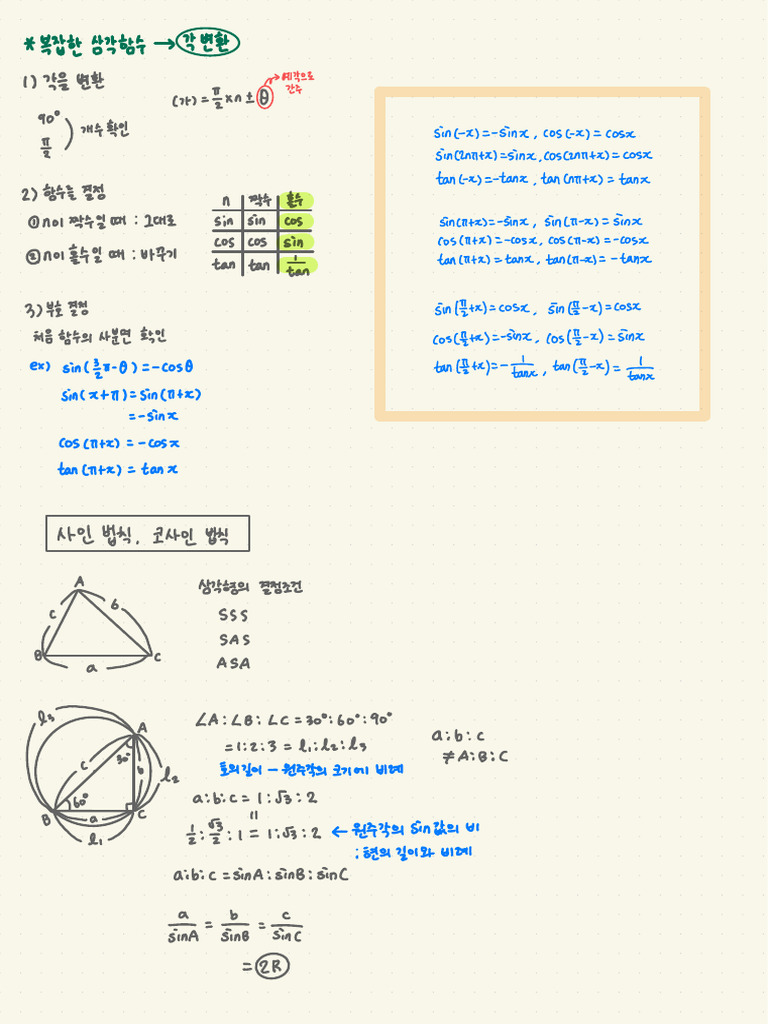 * 복잡한 삼각함수 → 각 변환
1) 각을 변환
(각) = π/2 × n ± θ → 예각으로 간주
90°
π/2 ) 개수 확인
2) 함수를 결정
① n이 짝수일 때 : 그대로
② n이 홀수일 때 : 바꾸기
n 짝수 홀수
sin sin cos
cos cos sin
tan tan 1/tan
3) 부호 결정
처음 함수의 사분면 확인
ex) sin(3/2π-θ) = -cosθ
sin(x+π) = sin(π+x)
= -sinx
cos(π+x) = -cosx
tan(π+x) = tanx
sin(-x) = -sinx, cos(-x) = cosx
sin(2nπ+x) = sinx, cos(2nπ+x) = cosx
tan(-x) = -tanx, tan(nπ+x) = tanx
sin(π+x) = -sinx, sin(π-x) = sinx
cos(π+x) = -cosx, cos(π-x) = -cosx
tan(π+x) = tanx, tan(π-x) = -tanx
sin(π/2+x) = cosx, sin(π/2-x) = cosx
cos(π/2+x) = -sinx, cos(π/2-x) = sinx
tan(π/2+x) = -1/tanx, tan(π/2-x) = 1/tanx
사인 법칙, 코사인 법칙
A
c b
B a C
삼각형의 결정조건
SSS
SAS
ASA
l₃
A
30°
c b
l₂
60°
B a C
l₁
∠A : ∠B : ∠C = 30° : 60° : 90°
= 1 : 2 : 3 = l₁ : l₂ : l₃
호의 길이 - 원주각의 크기에 비례
a : b : c
≠ A : B : C
a : b : c = 1 : √3 : 2
=
1/2 : √3/2 : 1 = 1 : √3 : 2 ← 원주각의 sin값의 비
: 현의 길이와 비례
a : b : c = sinA : sinB : sinC
a/sinA = b/sinB = c/sinC
= 2R